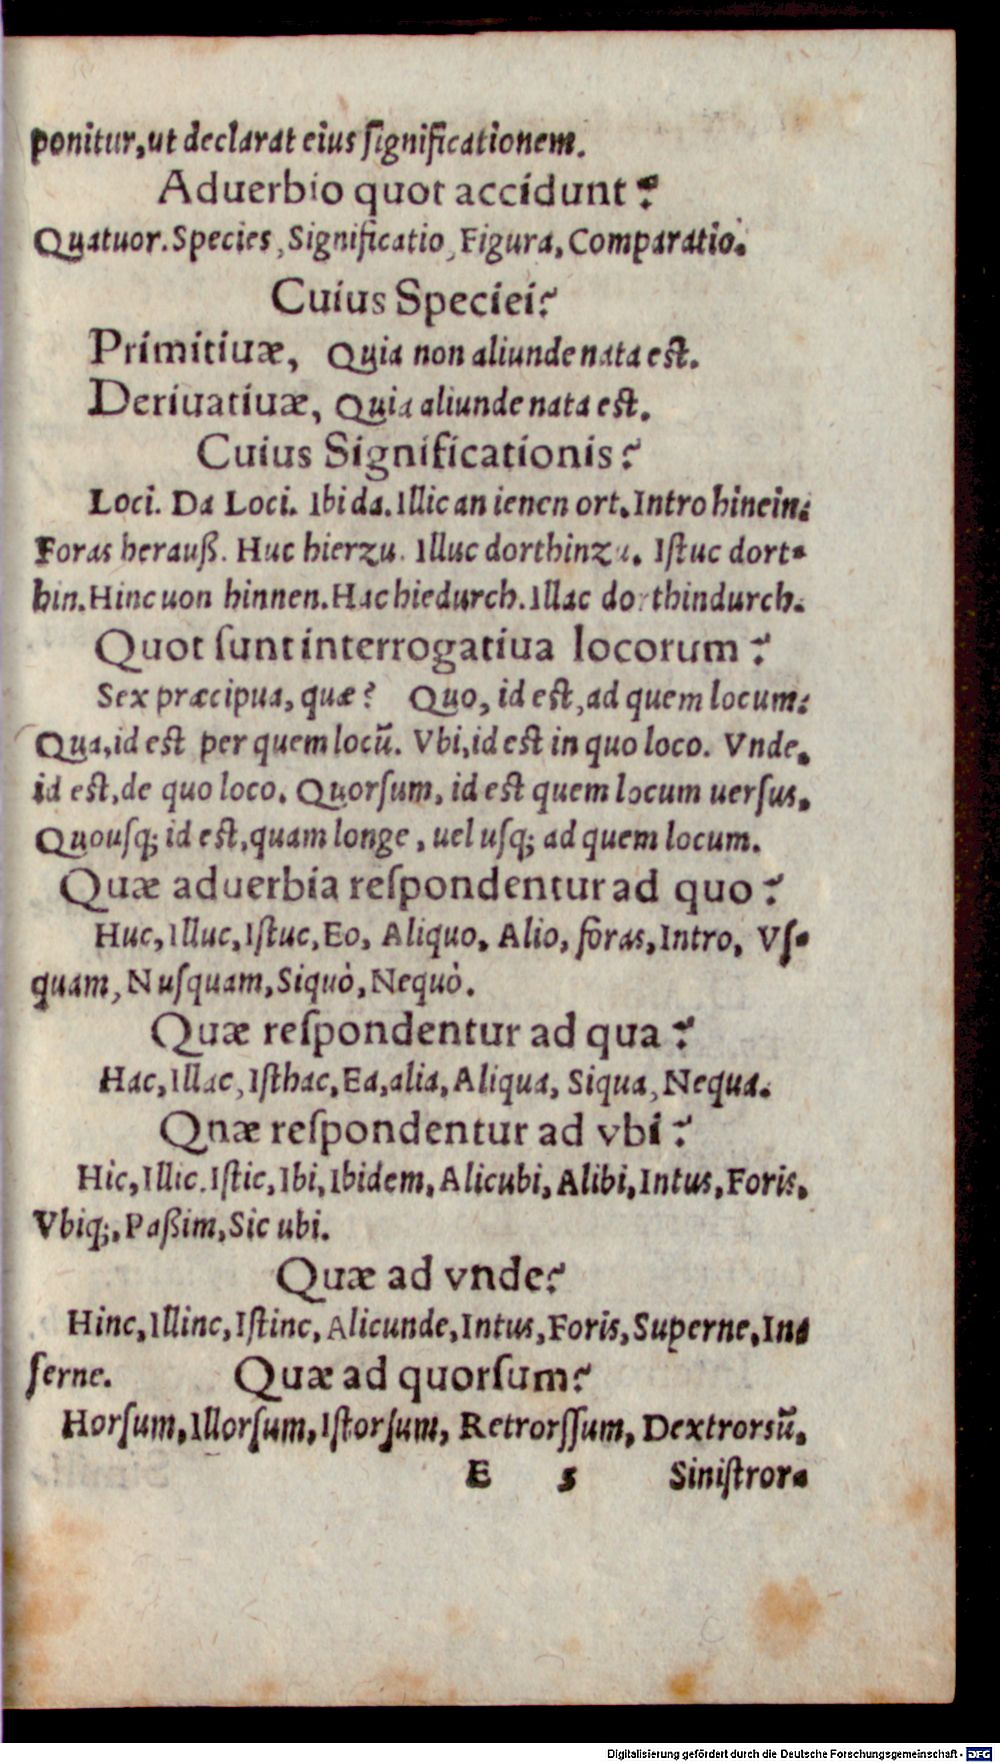 ponitur, ut declarat eius ſignificationem.
Aduerbio quot accidunt?
Quatuor. Species, Significatio, Figura, Comparatio.
Cuius Speciei?
Primitiuæ, Quia non aliunde nata est.
Deriuatiuæ, Quia aliunde nata est.
Cuius Significationis?
Loci. Da Loci. Ibi da. Illic an ienen ort. Intro hinein:
Foras herauß. Huc hierzu. Illuc dorthinzu. Iſtuc dort-
hin. Hinc uon hinnen. Hac hiedurch. Illac dorthindurch.
Quot ſunt interrogatiua locorum?
Sex præcipua, quæ? Quo, id est, ad quem locum:
Qua, id est per quem locũ. Vbi, id est in quo loco. Vnde,
id est, de quo loco. Quorſum, id est quem locum uerſus.
Quouſq; id est, quam longe, uel uſq; ad quem locum.
Quæ aduerbia reſpondentur ad quo?
Huc, Illuc, Iſtuc, Eo, Aliquo, Alio, foras, Intro, Vſ-
quam, Nuſquam, Siquò, Nequò.
Quæ reſpondentur ad qua?
Hac, Illac, Iſthac, Ea, alia, Aliqua, Siqua, Nequa.
Qnæ reſpondentur ad vbi?
Hic, Illic. Iſtic, Ibi, Ibidem, Alicubi, Alibi, Intus, Foris,
Vbiq;, Paßim, Sic ubi.
Quæ ad vnde?
Hinc, Illinc, Iſtinc, Alicunde, Intus, Foris, Superne, In-
ferne. Quæ ad quorſum?
Horſum, Illorſum, Iſtorſum, Retrorſſum, Dextrorsũ,
E 5 Siniſtror-
Digitalisierung gefördert durch die Deutsche Forschungsgemeinschaft - DFG